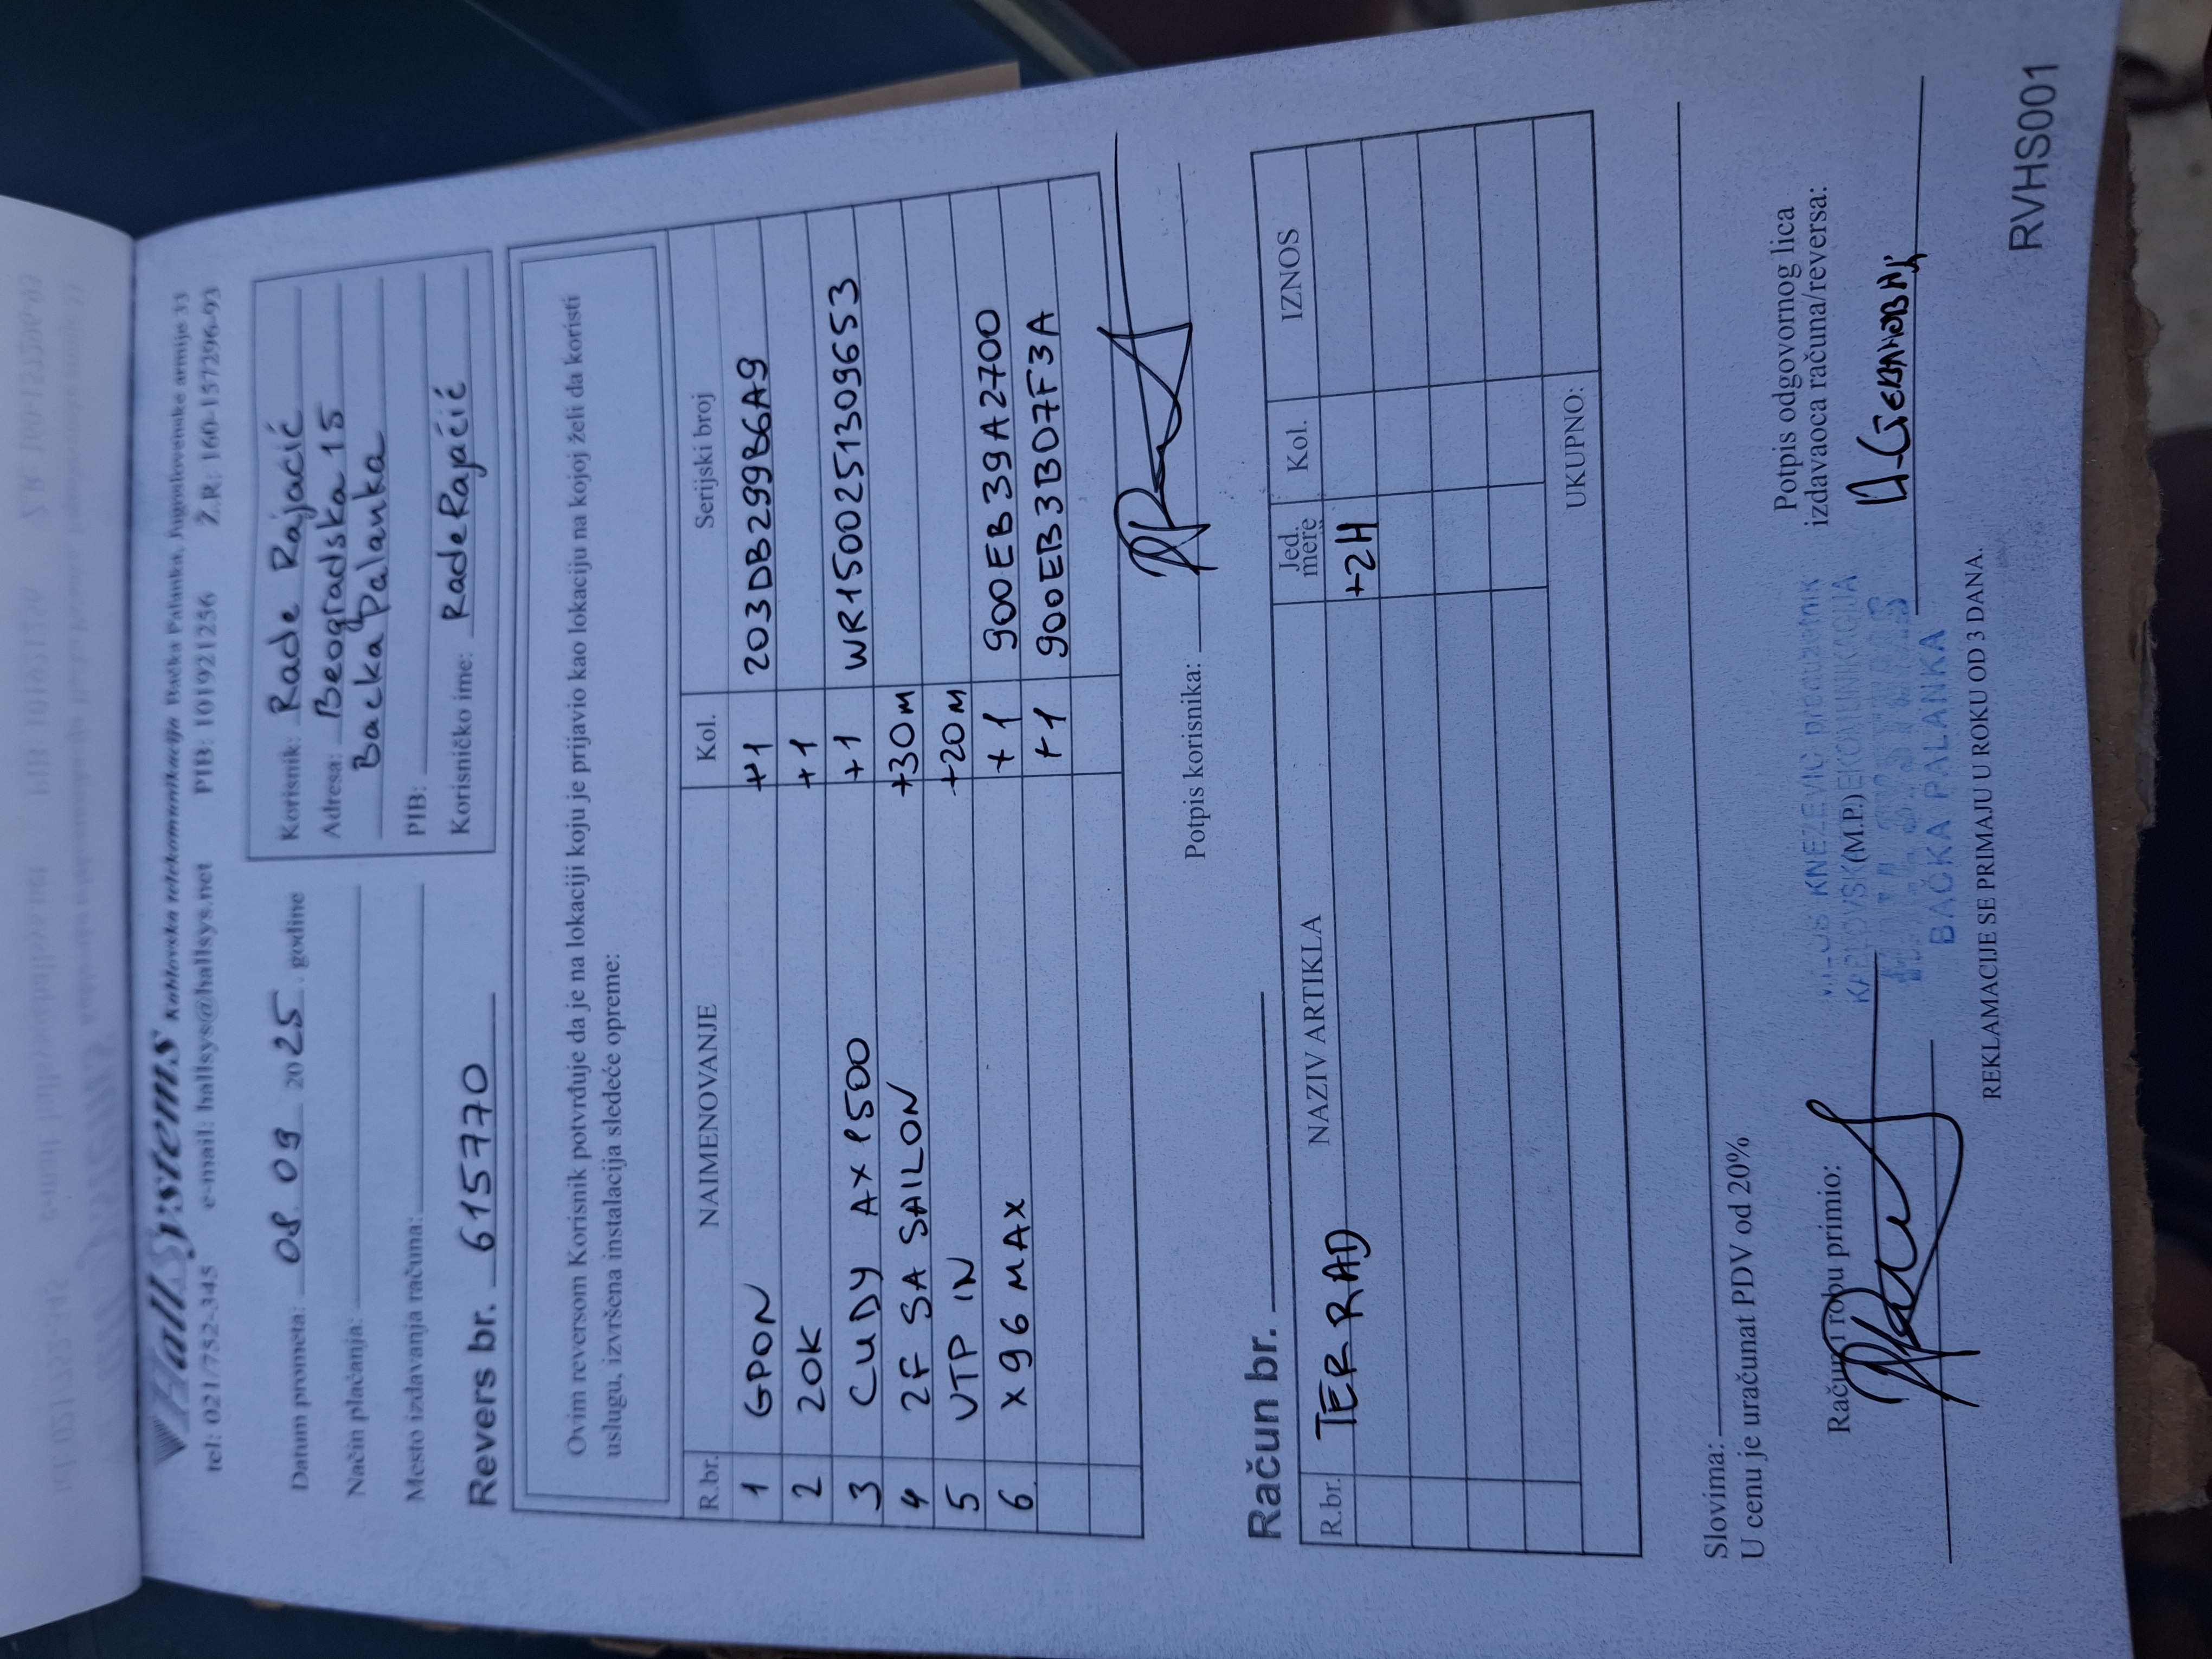 HallSystems Kablovska telekomunikacija Bačka Palanka, Jugoslovenske armije 33
tel: 021/752-345 e-mail: hallsys@hallsys.net PIB: 101921256 Ž.R.: 160-157296-93
Datum prometa: 08. 09 2025. godine
Način plaćanja:
Mesto izdavanja računa:
Revers br. 615770
Korisnik: Rade Rajacić
Adresa: Beogradska 15
Backa Palanka
PIB:
Korisničko ime: Rade Rajačić
Ovim reversom Korisnik potvrđuje da je na lokaciji koju je prijavio kao lokaciju na kojoj želi da koristi
uslugu, izvršena instalacija sledeće opreme:
R.br. NAIMENOVANJE Kol. Serijski broj
1 GPON +1 203DB299B6A9
2 20K +1
3 CUDY AX1500 +1 WR1500251309653
4 2F SA SAILON +30M
5 UTP IN +20M
6. X96 MAX +1 900EB39A2700
+1 900EB3BD7F3A
Potpis korisnika:
Račun br.
R.br. NAZIV ARTIKLA Jed. mere Kol. IZNOS
TER RAD +2H
UKUPNO:
Slovima:
U cenu je uračunat PDV od 20%
Račun i robu primio:
KNEZEVIĆ preduzetnik
(M.P.)
BAČKA PALANKA
Potpis odgovornog lica
izdavaoca računa/reversa:
REKLAMACIJE SE PRIMAJU U ROKU OD 3 DANA.
RVHS001